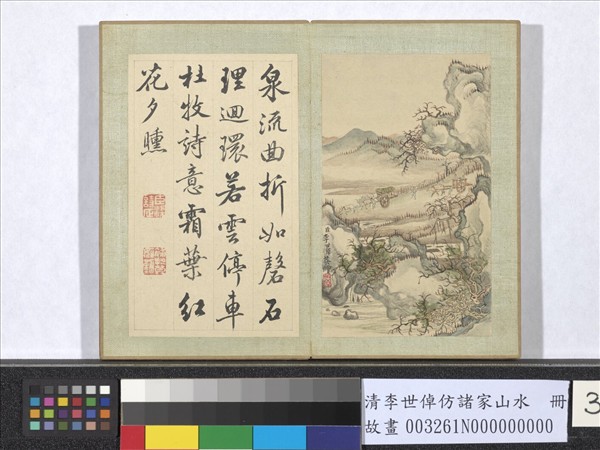 泉流曲折如磬石
理迴環若雲停車
杜牧詩意霜葉紅
花夕曛
清李世倬仿諸家山水 冊
故畫 003261N000000000
3